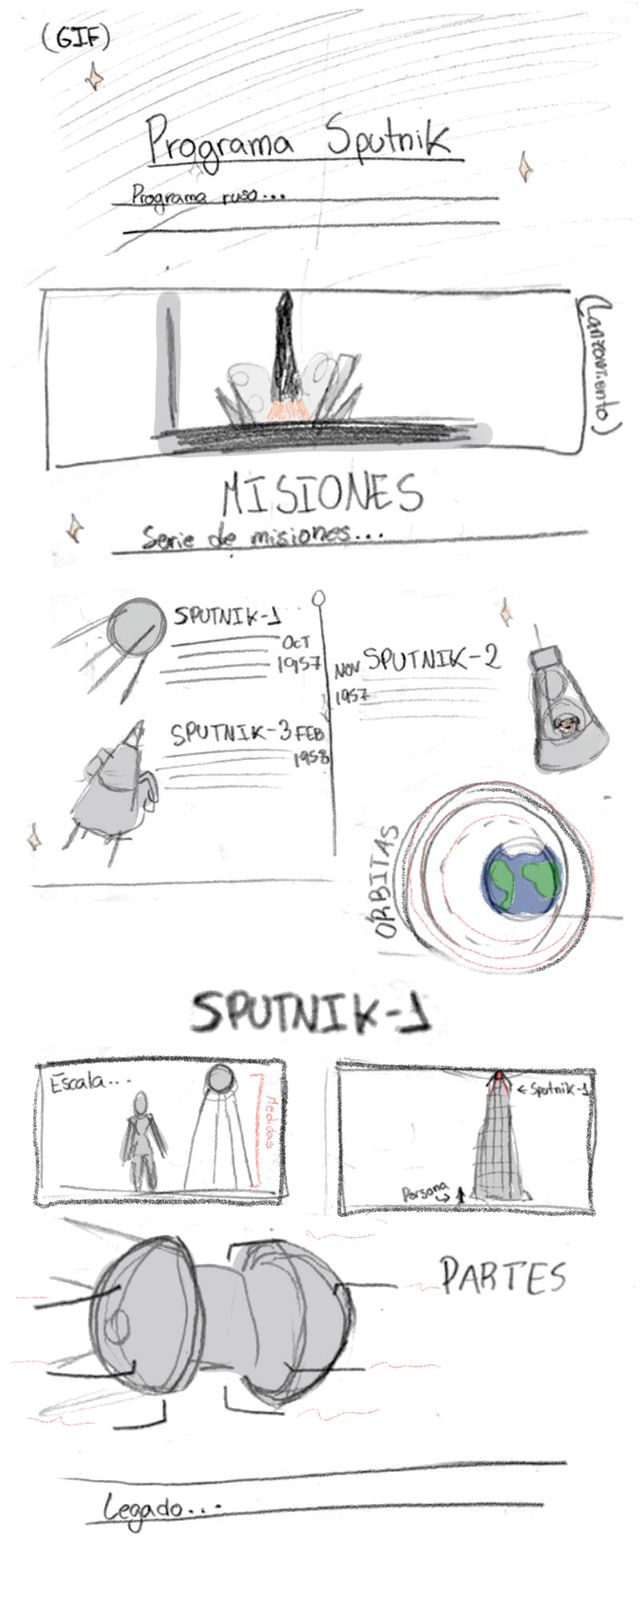 (GIF)
Programa Sputnik
Programa ruso...
(Lanzamiento)
MISIONES
Serie de misiones...
SPUTNIK-1
OCT
1957
NOV SPUTNIK-2
1957
SPUTNIK-3 FEB
1958
ÓRBITAS
SPUTNIK-1
Escala...
Medidas
← Sputnik-1
Persona
PARTES
Legado...